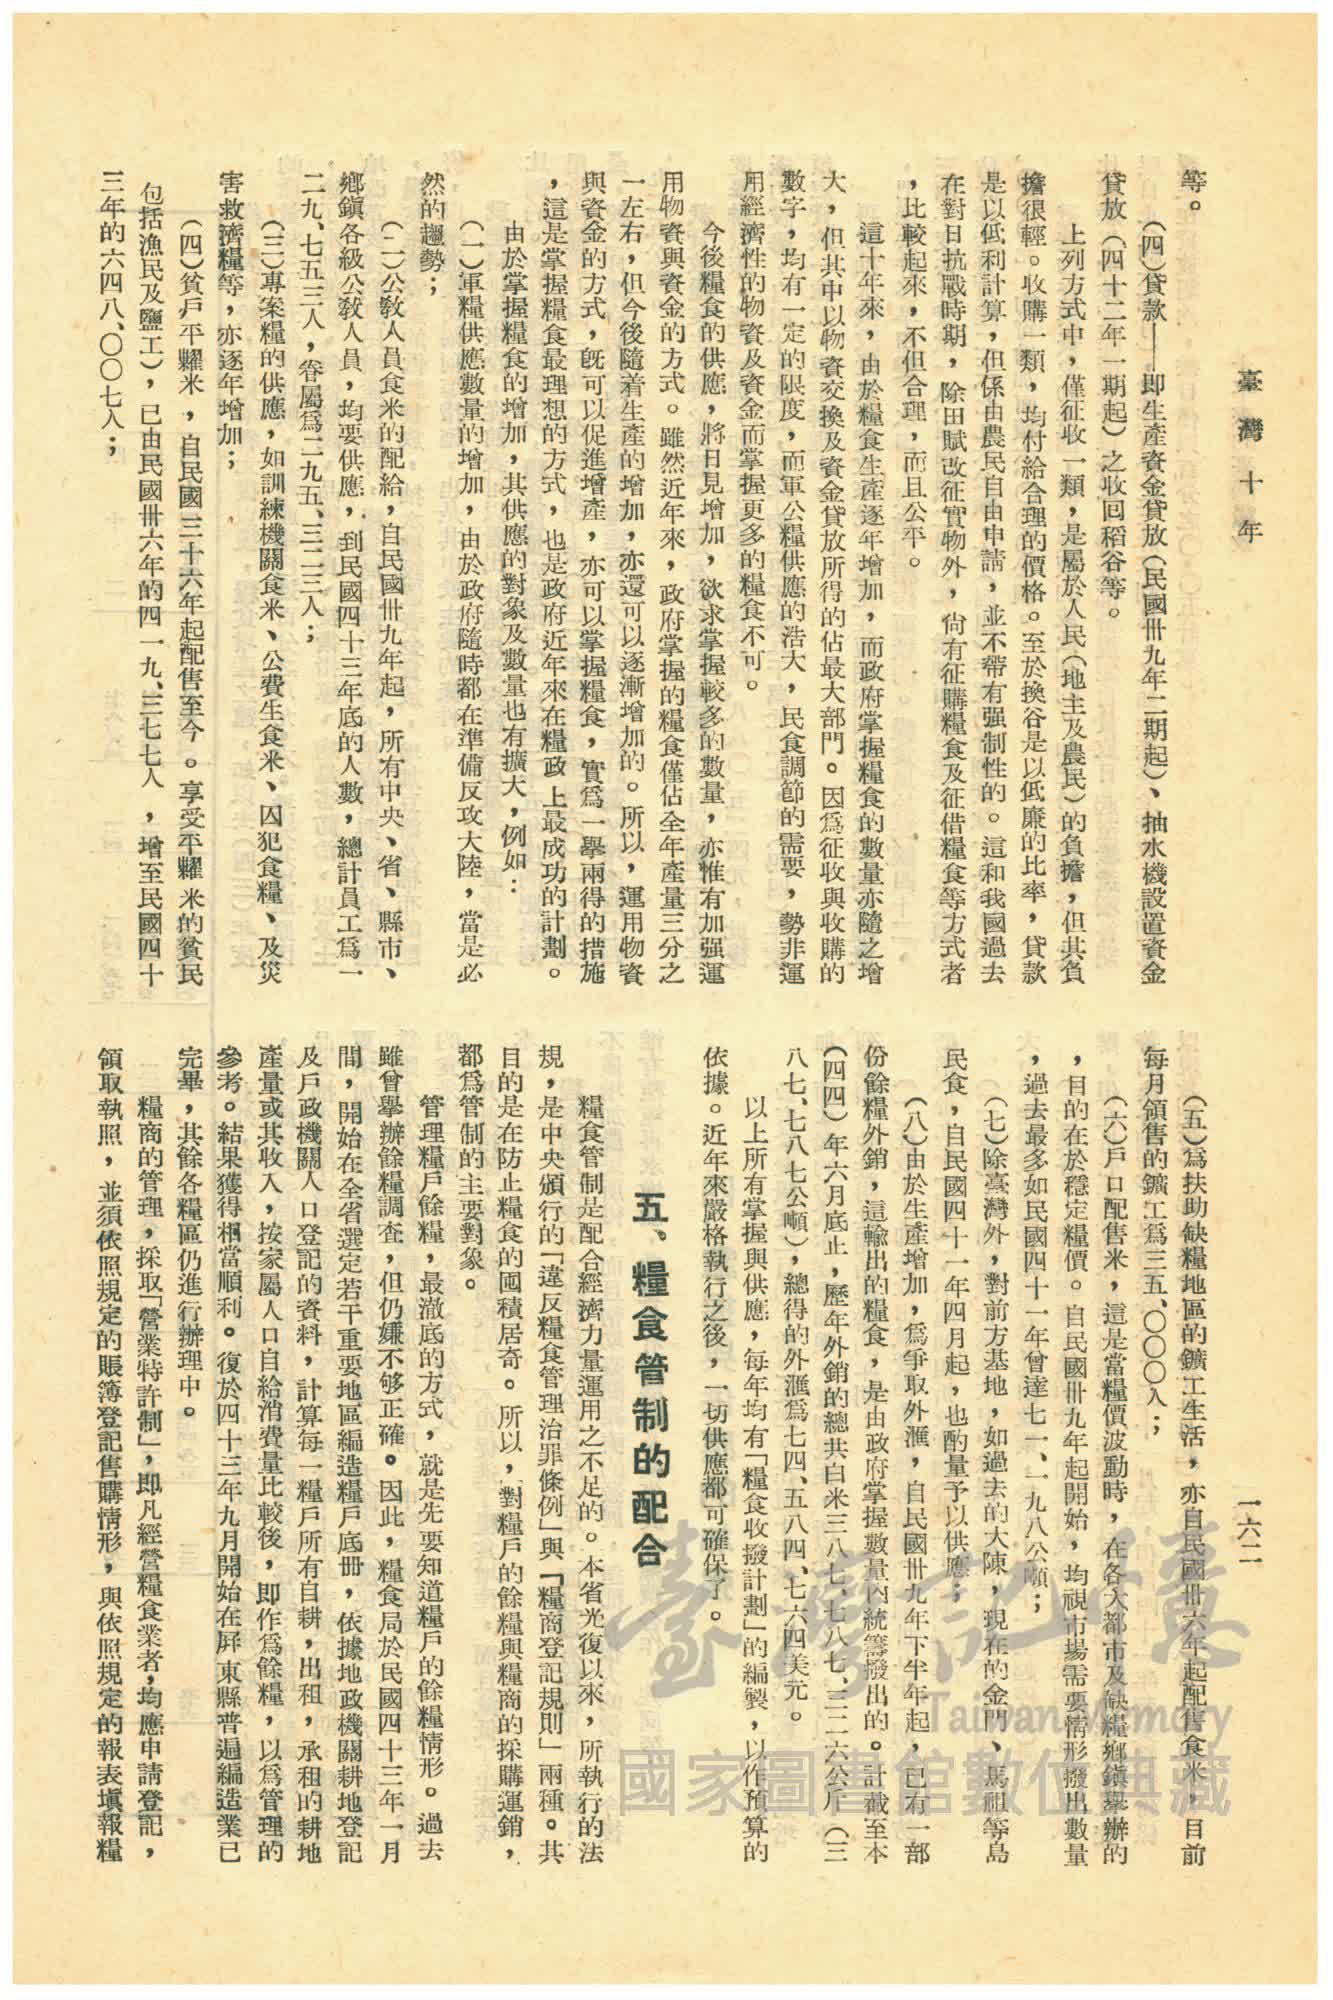 臺灣十年
一六二
等。
（四）貸款——即生產資金貸放（民國卅九年二期起）、抽水機設置資金
貸放（四十二年一期起）之收回稻谷等。
上列方式中，僅征收一類，是屬於人民（地主及農民）的負擔，但其負
擔很輕。收購一類，均付給合理的價格。至於換谷是以低廉的比率，貸款
是以低利計算，但係由農民自由申請，並不帶有强制性的。這和我國過去
在對日抗戰時期，除田賦改征實物外，尙有征購糧食及征借糧食等方式者
，比較起來，不但合理，而且公平。
這十年來，由於糧食生產逐年增加，而政府掌握糧食的數量亦隨之增
大，但其中以物資交換及資金貸放所得的佔最大部門。因爲征收與收購的
數字，均有一定的限度，而軍公糧供應的浩大，民食調節的需要，勢非運
用經濟性的物資及資金而掌握更多的糧食不可。
今後糧食的供應，將日見增加，欲求掌握較多的數量，亦惟有加强運
用物資與資金的方式。雖然近年來，政府掌握的糧食僅佔全年產量三分之
一左右，但今後隨着生產的增加，亦還可以逐漸增加的。所以，運用物資
與資金的方式，旣可以促進增產，亦可以掌握糧食，實爲一舉兩得的措施
，這是掌握糧食最理想的方式，也是政府近年來在糧政上最成功的計劃。
由於掌握糧食的增加，其供應的對象及數量也有擴大，例如：
（一）軍糧供應數量的增加，由於政府隨時都在準備反攻大陸，當是必
然的趨勢；
（二）公敎人員食米的配給，自民國卅九年起，所有中央、省、縣市、
鄉鎭各級公敎人員，均要供應，到民國四十三年底的人數，總計員工爲一
二九、七五三人，眷屬爲二九五、三二三人；
（三）專案糧的供應，如訓練機關食米、公費生食米、囚犯食糧、及災
害救濟糧等，亦逐年增加；
（四）貧戶平糶米，自民國三十六年起配售至今。享受平糶米的貧民
包括漁民及鹽工），已由民國卅六年的四一九、三七七人，增至民國四十
三年的六四八、〇〇七人；
（五）爲扶助缺糧地區的鑛工生活，亦自民國卅六年起配售食米，目前
每月領售的鑛工爲三五、〇〇〇人；
（六）戶口配售米，這是當糧價波動時，在各大都市及缺糧鄉鎭舉辦的
，目的在於穩定糧價。自民國卅九年起開始，均視市場需要情形撥出數量
，過去最多如民國四十一年曾達七一、一九八公噸；
（七）除臺灣外，對前方基地，如過去的大陳，現在的金門、馬祖等島
民食，自民國四十一年四月起，也酌量予以供應；
（八）由於生產增加，爲爭取外滙，自民國卅九年下半年起，已有一部
份餘糧外銷，這輸出的糧食，是由政府掌握數量內統籌撥出的。計截至本
（四四）年六月底止，歷年外銷的總共白米三八七、七八七、三二六公斤（三
八七、七八七公噸），總得的外滙爲七四、五八四、七六四美元。
以上所有掌握與供應，每年均有「糧食收撥計劃」的編製，以作預算的
依據。近年來嚴格執行之後，一切供應都可確保了。
五、糧食管制的配合
糧食管制是配合經濟力量運用之不足的。本省光復以來，所執行的法
規，是中央頒行的「違反糧食管理治罪條例」與「糧商登記規則」兩種。共
目的是在防止糧食的囤積居奇。所以，對糧戶的餘糧與糧商的採購運銷，
都爲管制的主要對象。
管理糧戶餘糧，最澈底的方式，就是先要知道糧戶的餘糧情形。過去
雖曾舉辦餘糧調査，但仍嫌不够正確。因此，糧食局於民國四十三年一月
間，開始在全省選定若干重要地區編造糧戶底册，依據地政機關耕地登記
及戶政機關人口登記的資料，計算每一糧戶所有自耕，出租，承租的耕地
產量或其收入，按家屬人口自給消費量比較後，即作爲餘糧，以爲管理的
參考。結果獲得相當順利。復於四十三年九月開始在屛東縣普遍編造業已
完畢，其餘各糧區仍進行辦理中。
糧商的管理，採取「營業特許制」，即凡經營糧食業者，均應申請登記，
領取執照，並須依照規定的賬簿登記售購情形，與依照規定的報表塡報糧
臺灣記憶
Taiwan Memory
國家圖書館數位典藏